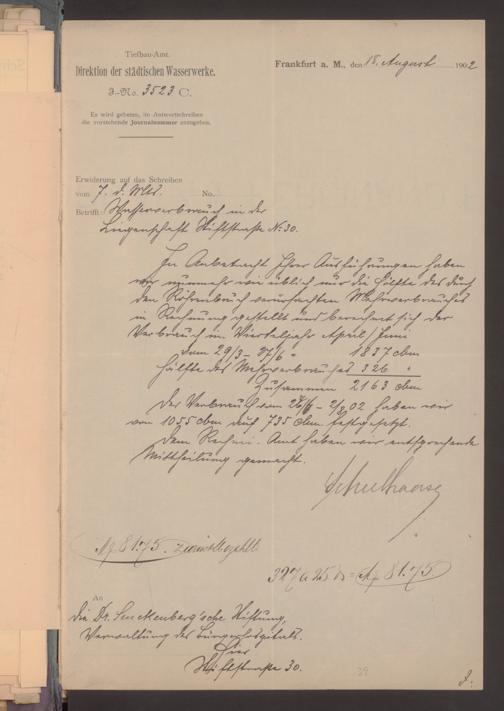 Tiefbau-Amt.
Direktion der städtischen Wasserwerke.
J.-No. 3523 C.
Es wird gebeten, im Antwortschreiben
die vorstehende Journalnummer anzugeben.
Frankfurt a. M., den 18. August 1902
Erwiderung auf das Schreiben
vom 7. d. Mts. No.
Betrifft: Wasserverbrauch in der
Liegenschaft Stiftstraße No 30.
In Anbetracht Ihrer Ausführungen haben
wir nunmehr wie üblich nur die Hälfte des durch
den Röhrenbruch verursachten Mehrverbrauches
in Rechnung gestellt und berechnet sich der
Verbrauch im Vierteljahr April/Juni
vom 29/3 - 27/6 1837 cbm
Hälfte des Mehrverbrauches 326 "
Zusammen 2163 cbm
Den Verbrauch vom - 2/8 02 haben wir
von 1055 cbm auf 735 cbm festgesetzt.
Dem Rechnei-Amt haben wir entsprechende
Mittheilung gemacht.
M 81.75. zurückbezahlt
327 a 25 = M 81.75
An
die Dr. Senckenberg'sche Stiftung,
Verwaltung des Bürgerhospitals.
Hier
Stiftstraße 30.